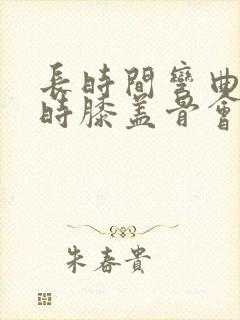 長時間彎曲
時膝盖骨會
朱春貴